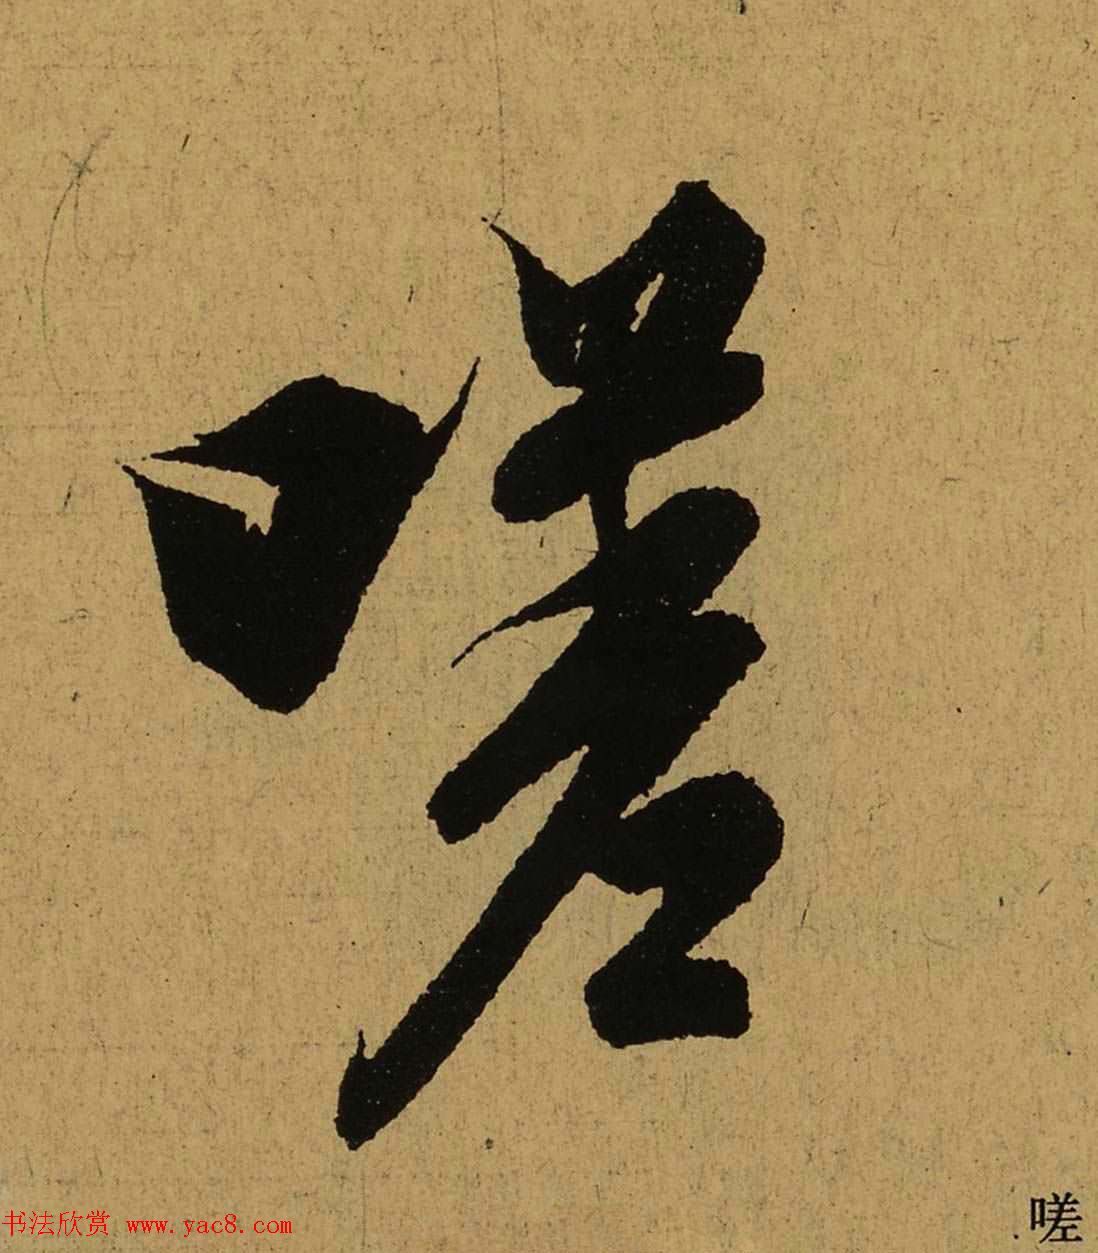 嗟
书法欣赏 www.yac8.com
嗟